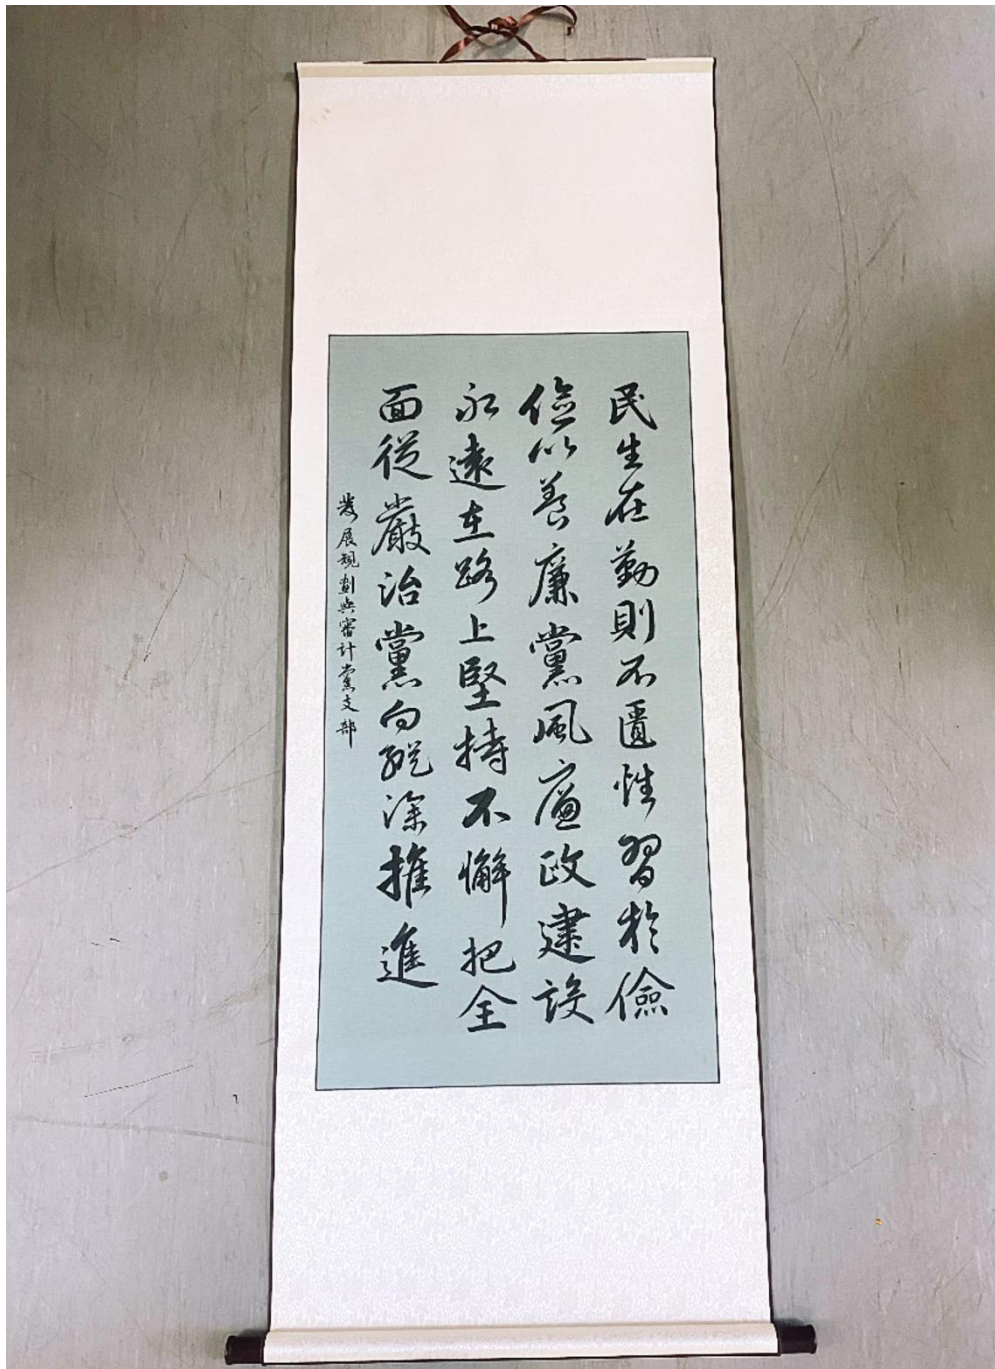 民生在勤勤則不匱性習於儉
儉以養廉黨風廉政建設
永遠在路上堅持不懈把全
面從嚴治黨向縱深推進
發展規劃與審計黨支部